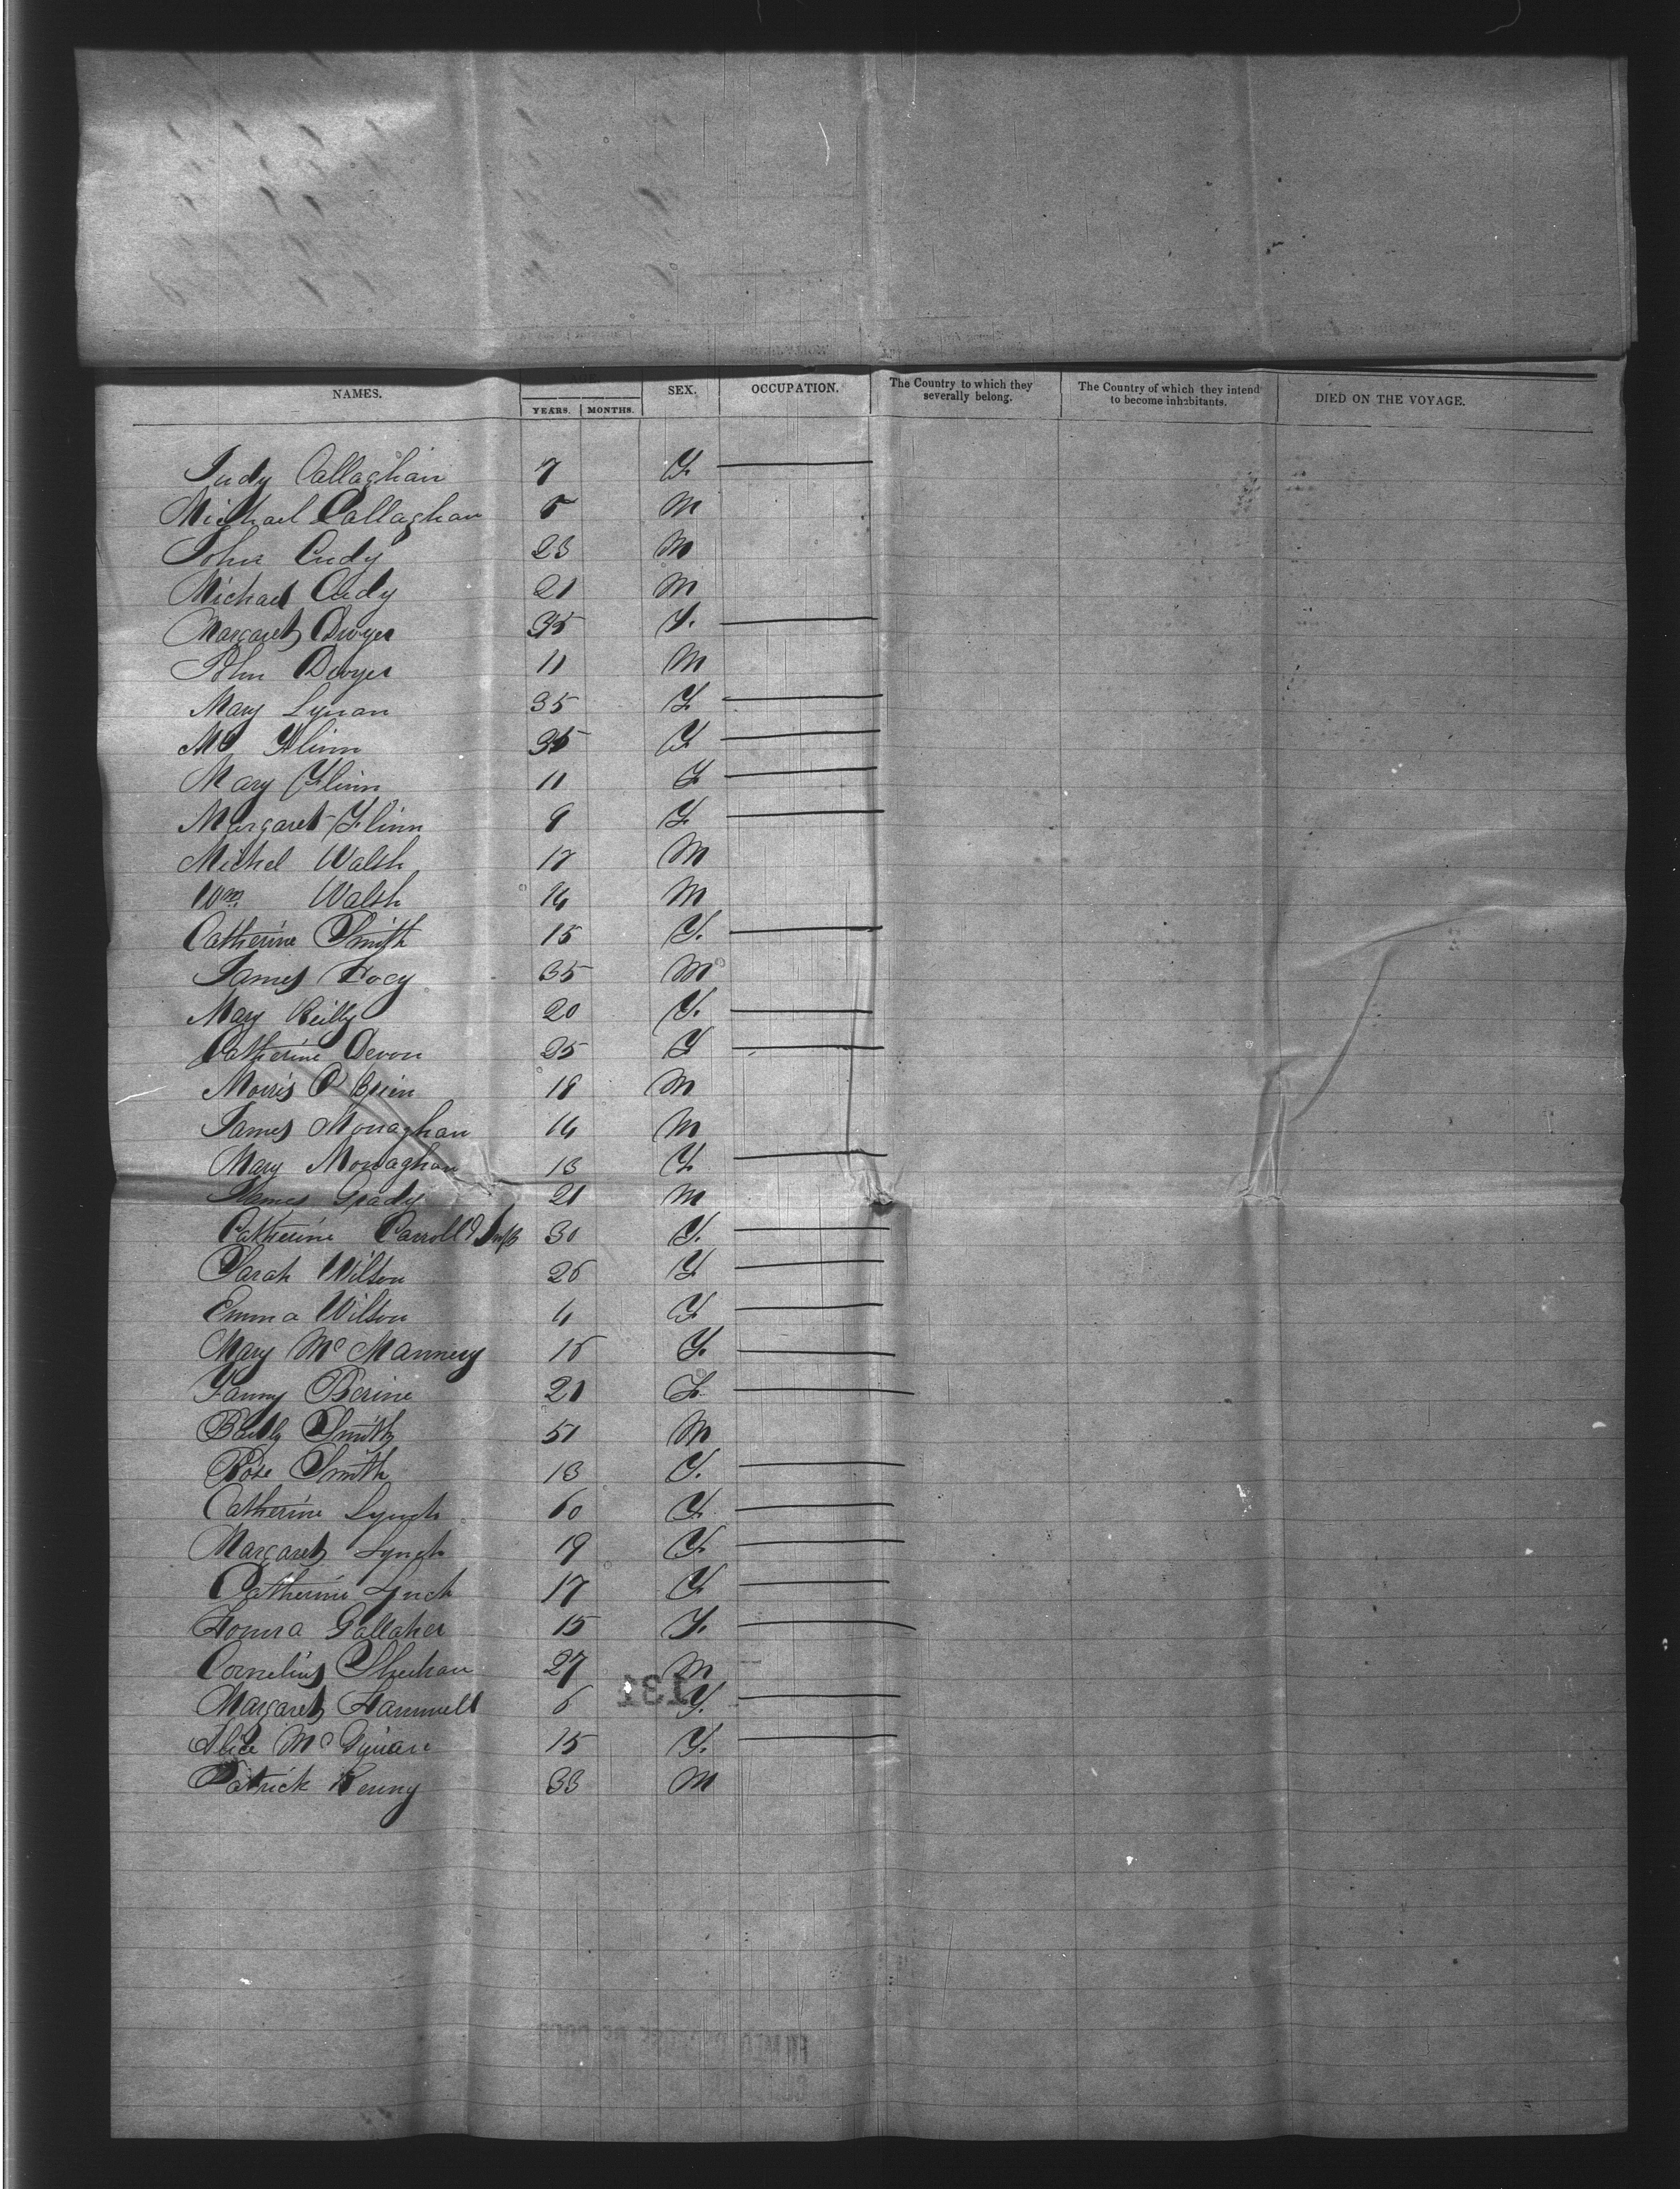 NAMES. AGE. YEARS. MONTHS. SEX. OCCUPATION. The Country to which they severally belong. The Country of which they intend to become inhabitants. DIED ON THE VOYAGE.
Judy Callaghan 7 F
Michael Callaghan 5 M
John Cudy 23 M
Michael Cudy 21 M
Margaret Dwyer 35 F.
John Dwyer 11 M
Mary Lynan 35 F
Flinn 35 F
Mary Flinn 11 F
Margaret Flinn 9 F
Michel Walsh 17 M
Wm Walsh 14 M
Catherine Smith 15 F.
James 35 M
Mary Reilly 20 F.
Catherine Devon 25 F
Morris O Brien 18 M
James Monaghan 14 M
Mary Monaghan 13 F
James Grady 21 M
Catherine Carroll & Inft 30 F.
Sarah Wilson 26 F
Emma Wilson 4 F
Mary Mc 16 F.
Fanny 21 F.
Smith 51 M
Rose Smith 13 F.
Catherine Lynch 60 F
Margaret Lynch 19 F
Catherine Lynch 17 F
Honora Gallaher 15 F.
Cornelius Sheehan 27 M
Margaret Hammell 6 F.
131
Alice Mc 15 F.
Patrick Kenny 33 M